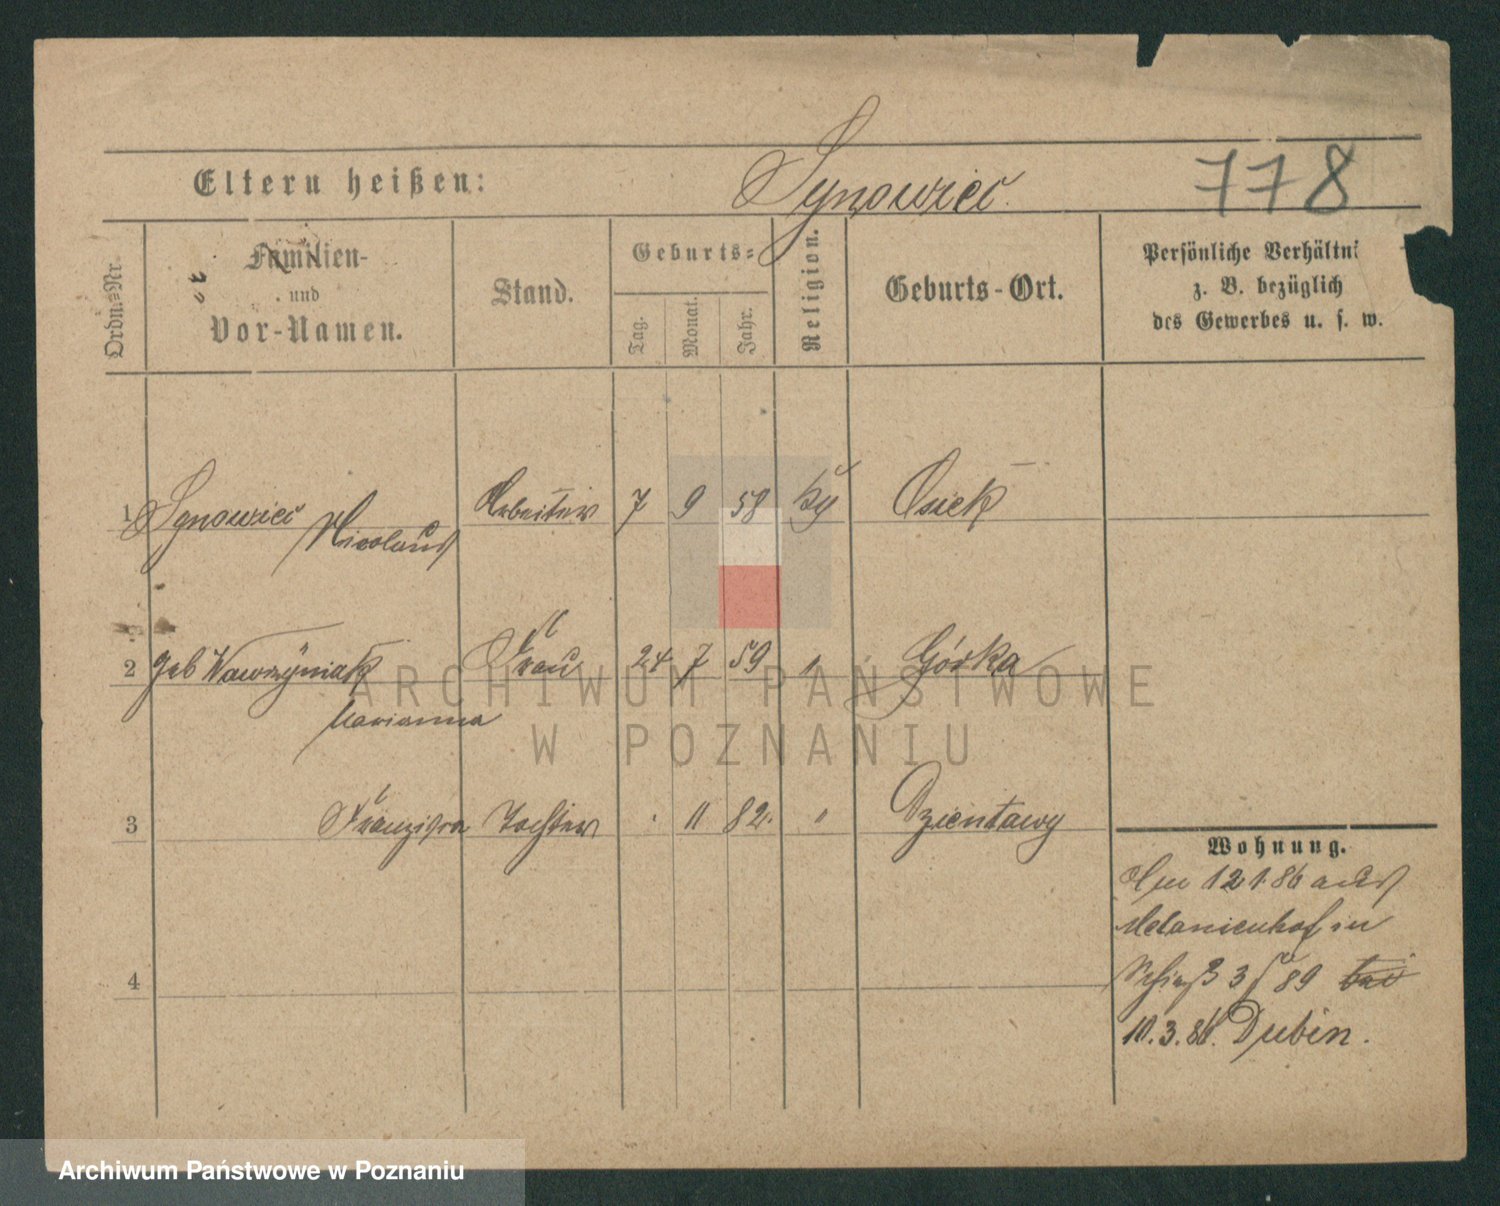 Eltern heißen:
Synowiec
778
Ordn.=Nr.
Familien-
und
Vor-Namen.
Stand.
Geburts=
Tag.
Monat.
Jahr.
Religion.
Geburts-Ort.
Persönliche Verhältni
z. B. bezüglich
des Gewerbes u. s. w.
1 Synowiec Arbeiter 7 9 58 Osiek
Nicolaus
2 geb Wawrzyniak Frau 24 7 59 " Górka
Marianna
3 Franziska Tochter . 11 82. " Dzientawy
4
Wohnung.
Am 12 1. 86 aus
Melanienhof in
89
10. 3. 86. Dubin.
ARCHIWUM PAŃSTWOWE
W POZNANIU
Archiwum Państwowe w Poznaniu